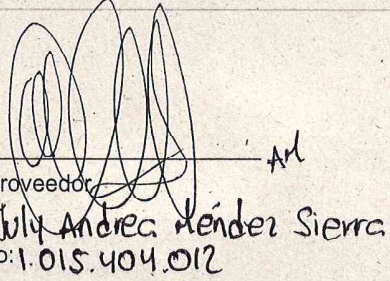 AM
roveedor
uly Andrea Méndez Sierra
o: 1.015.404.012